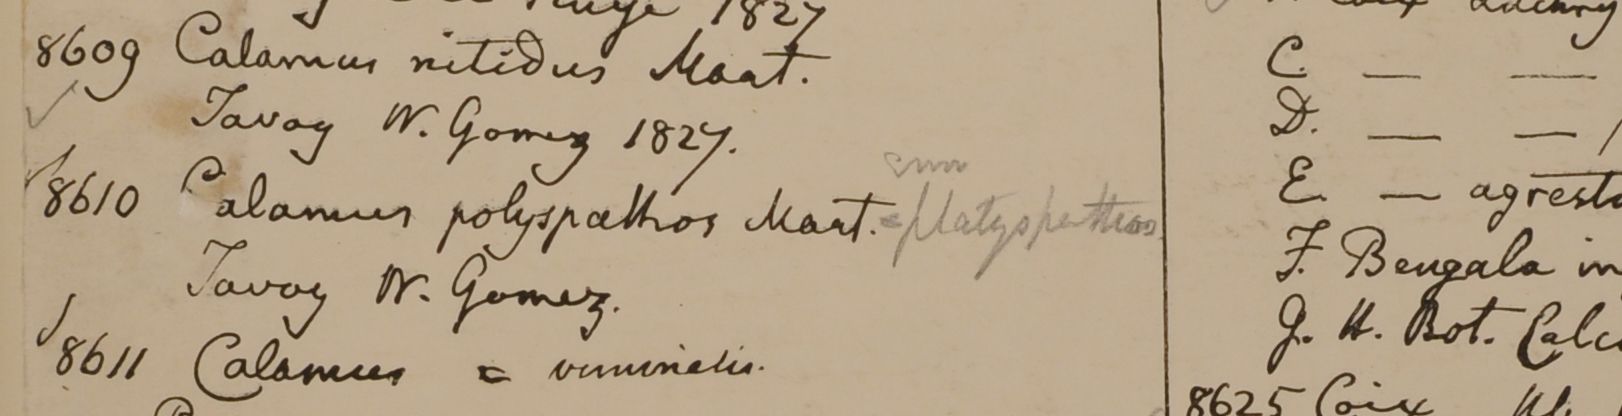 1827
8609 Calamus nitidus Mart.
Tavoy W. Gomez 1827.
8610 Calamus polyspathos Mart. = platyspathos
Tavoy W. Gomez.
8611 Calamus = viminalis.
C. — —
D. — —
E. — agrest
F. Bengala in
G. H. Bot. Calc
8625 Coix